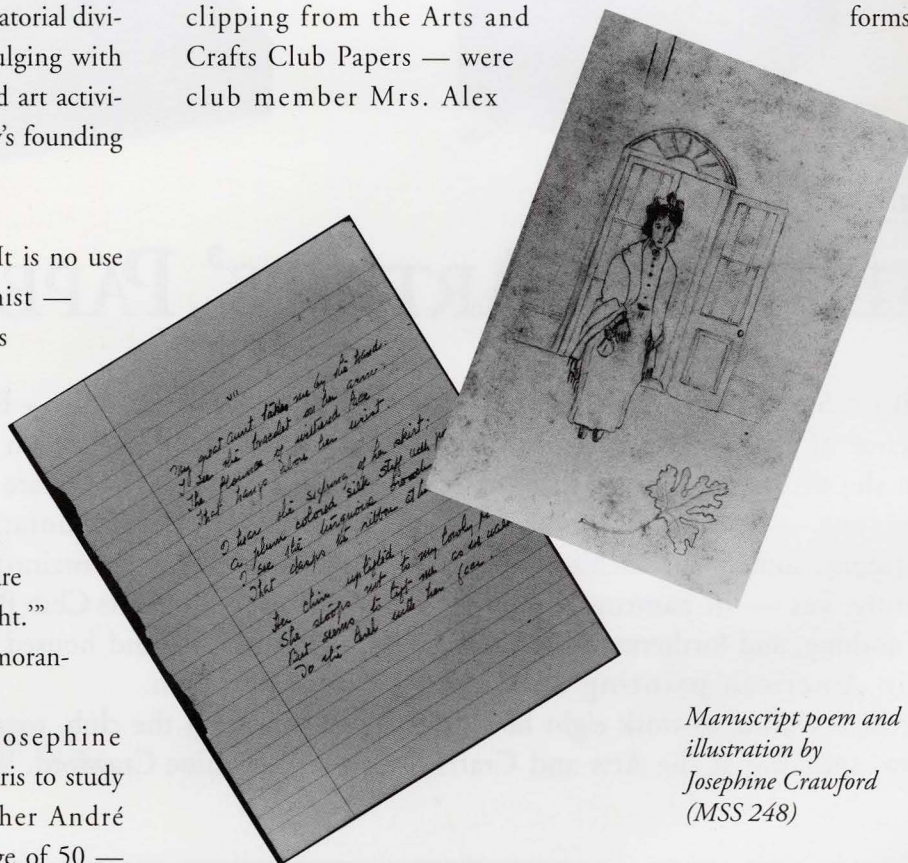 atorial divi-
ulging with
d art activi-
y's founding
It is no use
nist —
s
are
ht.'"
noran-
osephine
ris to study
her André
ge of 50 —
clipping from the Arts and
Crafts Club Papers — were
club member Mrs. Alex
forms
VII
My great aunt takes me by the hand.
I see the bracelet on her arm.
The flounce of
That hangs above her wrist.
I hear the of her skirt:
a plum colored silk stuff
I see the turquoise brooch
That clasps the ribbon at
Her chin uptilted.
She stoops not to my lowly
But seems to me as we
To the with her fan.
Manuscript poem and
illustration by
Josephine Crawford
(MSS 248)